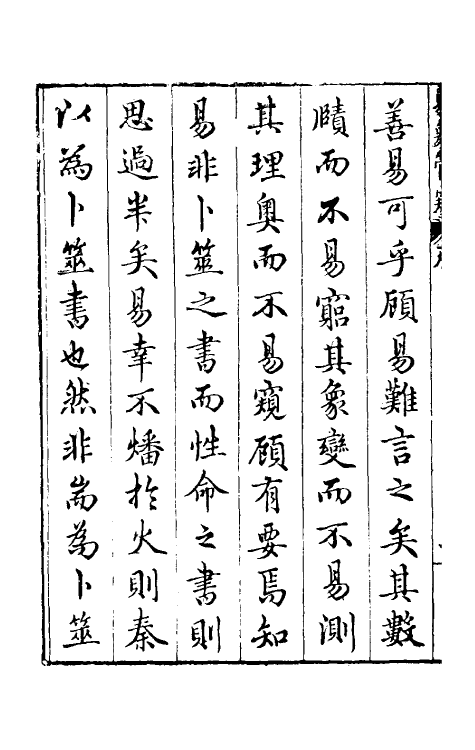 善易可乎顧易難言之矣其數
賾而不易窮其象變而不易測
其理奧而不易窺顧有要焉知
易非卜筮之書而性命之書則
思過半矣易幸不燔於火則秦
以為卜筮書也然非耑為卜筮